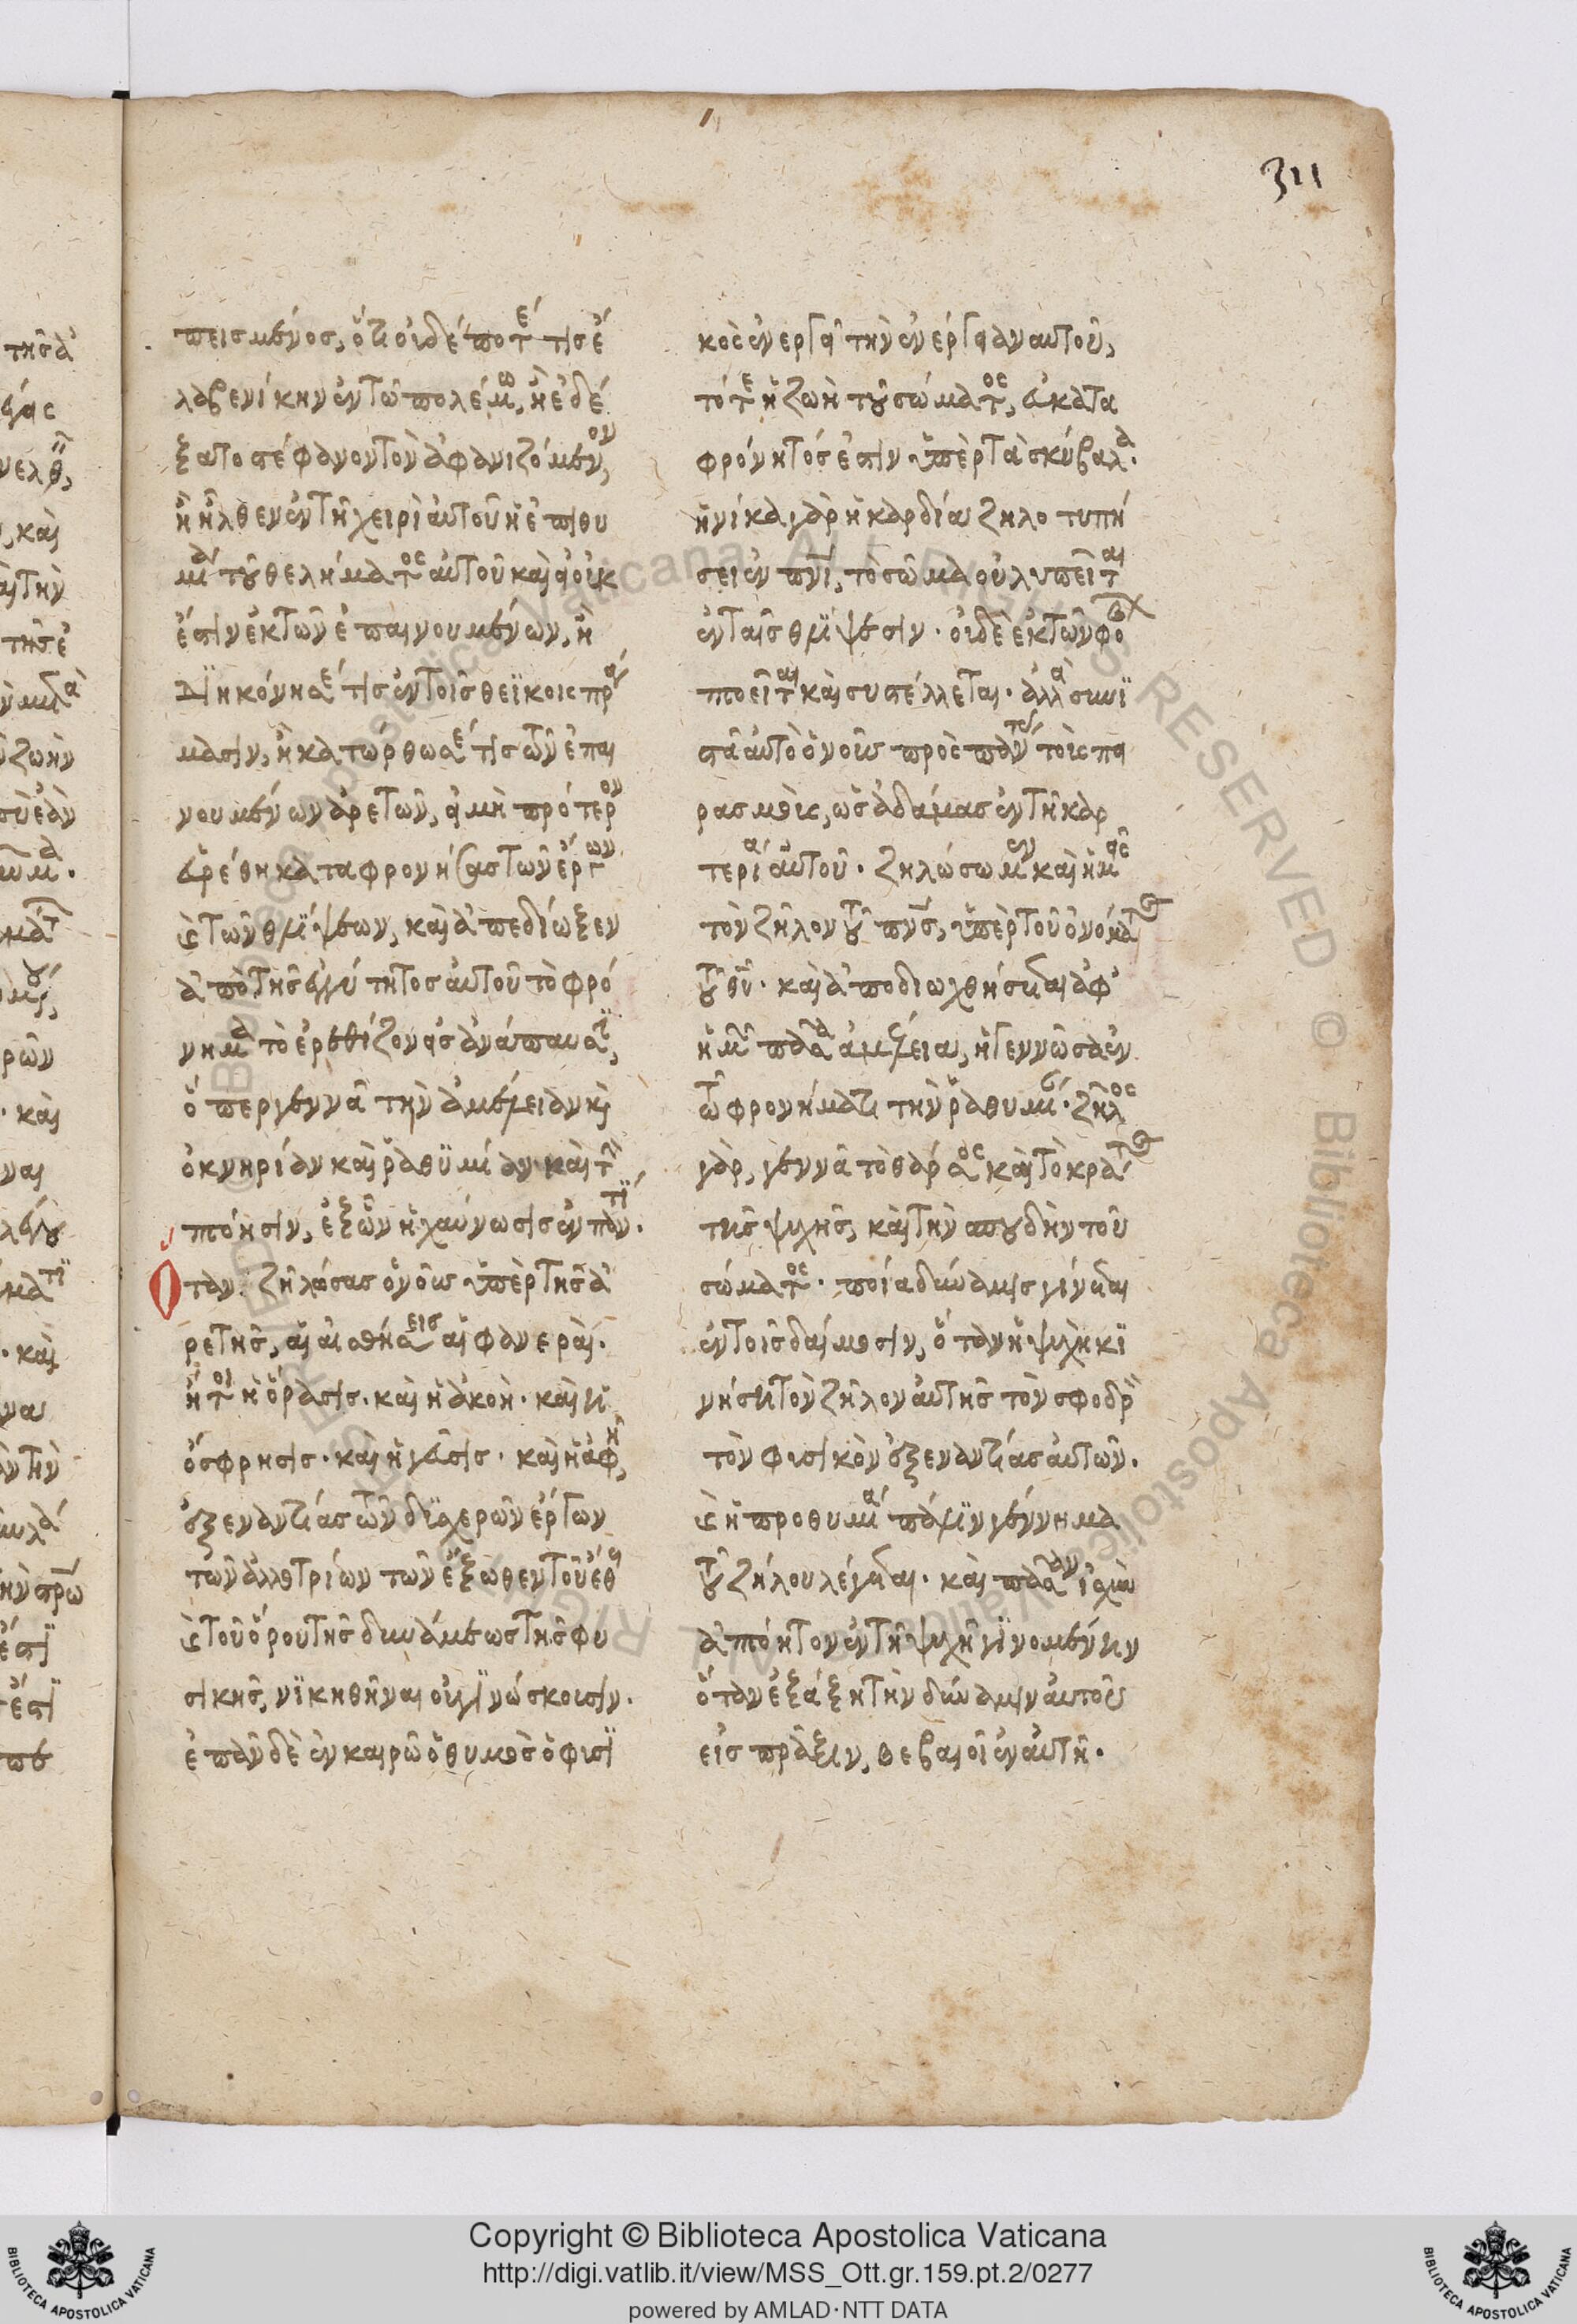 311
πεισμένος, ὅτι οὐδέποτέ τις ἔ
λαβε νίκην ἐν τῶ πολέμω, ἢ ἐδέ
ξατο στέφανον τὸν ἀφανιζόμενον,
ἢ ἦλθεν ἐν τῆ χειρὶ αὐτοῦ ἡ ἐπιθυ
μία τοῦ θελήματος αὐτοῦ καὶ εἰ οὐκ
ἔστιν ἐκ τῶν ἐπαινουμένων, ἢ
διηκόνησέ τις ἐν τοῖς θεϊκοῖς πρά
μασιν, ἢ κατώρθωσέ τις τῶν ἐπαι
νουμένων ἀρετῶν, εἰ μὴ πρότερον
εὑρέθη καταφρονήσας τῶν ἔργων
καὶ τῶν θλίψεων, καὶ ἀπεδίωξεν
ἀπὸ τῆς ἐγγύτητος αὐτοῦ τὸ φρό
νημα τὸ ἐρεθίζον εἰς ἀνάπαυσιν,
ὅπερ γεννᾶ τὴν ἀμέλειαν καὶ
ὀκνηρίαν καὶ ῥαθυμίαν καὶ τὴν
πτόησιν, ἐξ ὧν ἡ χαύνωσις ἐν παντί.
Ὅταν ζηλώσας ὁ νοῦς ὑπὲρ τῆς ἀ
ρετῆς, αἱ αἰσθήσεις αἱ φανεραί.
ἤτοι ἡ ὅρασις. καὶ ἡ ἀκοή. καὶ ἡ
ὄσφρησις. καὶ ἡ γεῦσις. καὶ ἡ ἁφή,
ἐξ ἐναντίας τῶν δυσχερῶν ἔργων
τῶν ἀλλοτρίων τῶν ἔξωθεν τοῦ ἔθους
καὶ τοῦ ὅρου τῆς δυνάμεως τῆς φυ
σικῆς, νικηθῆναι οὐ γινώσκουσιν.
ἐπὰν δὲ ἐν καιρῶ ὁ θυμὸς ὁ φυσι
κὸς ἐνεργεῖ τὴν ἐνέργειαν αὐτοῦ,
τότε ἡ ζωὴ τοῦ σώματος, εὐκατα
φρόνητός ἐστιν ὑπὲρ τὰ σκύβαλα.
ἡνίκα γὰρ ἡ καρδία ζηλοτυπή
σει ἐν πνι, τὸ σῶμα οὐ λυπεῖται
ἐν ταῖς θλίψεσιν. οὐδὲ ἐκ τῶν φο
ποεῖται καὶ συστέλλεται. ἀλλὰ συνι
στᾶ αὐτὸ ὁ νοῦς πρὸς πάντας τοῖς πει
ρασμοῖς, ὡς ἀδάμας ἐν τῆ καρ
τερία αὐτοῦ. ζηλώσωμεν καὶ ἡμεῖς
τὸν ζῆλον τοῦ πνς, ὑπὲρ τοῦ ὀνόματος
τοῦ θυ. καὶ ἀποδιωχθήσεται ἀφ’
ἡμῶν πᾶσα ἀμέλεια, ἡ γεννῶσα ἐν
τῶ φρονήματι τὴν ῥαθυμίαν. ζῆλος
γὰρ, γεννᾶ τὸ θάρσος καὶ τὸ κράτος
τῆς ψυχῆς, καὶ τὴν σπουδὴν τοῦ
σώματος. ποία δύναμις γίνεται
ἐν τοῖς δαίμοσιν, ὅταν ἡ ψυχὴ κι
νήση τὸν ζῆλον αὐτῆς τὸν σφοδρὸν
τὸν φυσικὸν ἐξ ἐναντίας αὐτῶν.
καὶ ἡ προθυμία πάλιν γέννημα
τοῦ ζήλου λέγεται. καὶ πᾶσαν ἰσχὺν
ἀπτόητον ἐν τῆ ψυχῆ γινομένην
ὅταν ἐξάξη τὴν δύναμιν αὐτοῦ
εἰς πρᾶξιν, βεβαιοῖ ἐν αὐτῆ.
Copyright © Biblioteca Apostolica Vaticana
http://digi.vatlib.it/view/MSS_Ott.gr.159.pt.2/0277
powered by AMLAD·NTT DATA
BIBLIOTECA APOSTOLICA VATICANA
BIBLIOTECA APOSTOLICA VATICANA